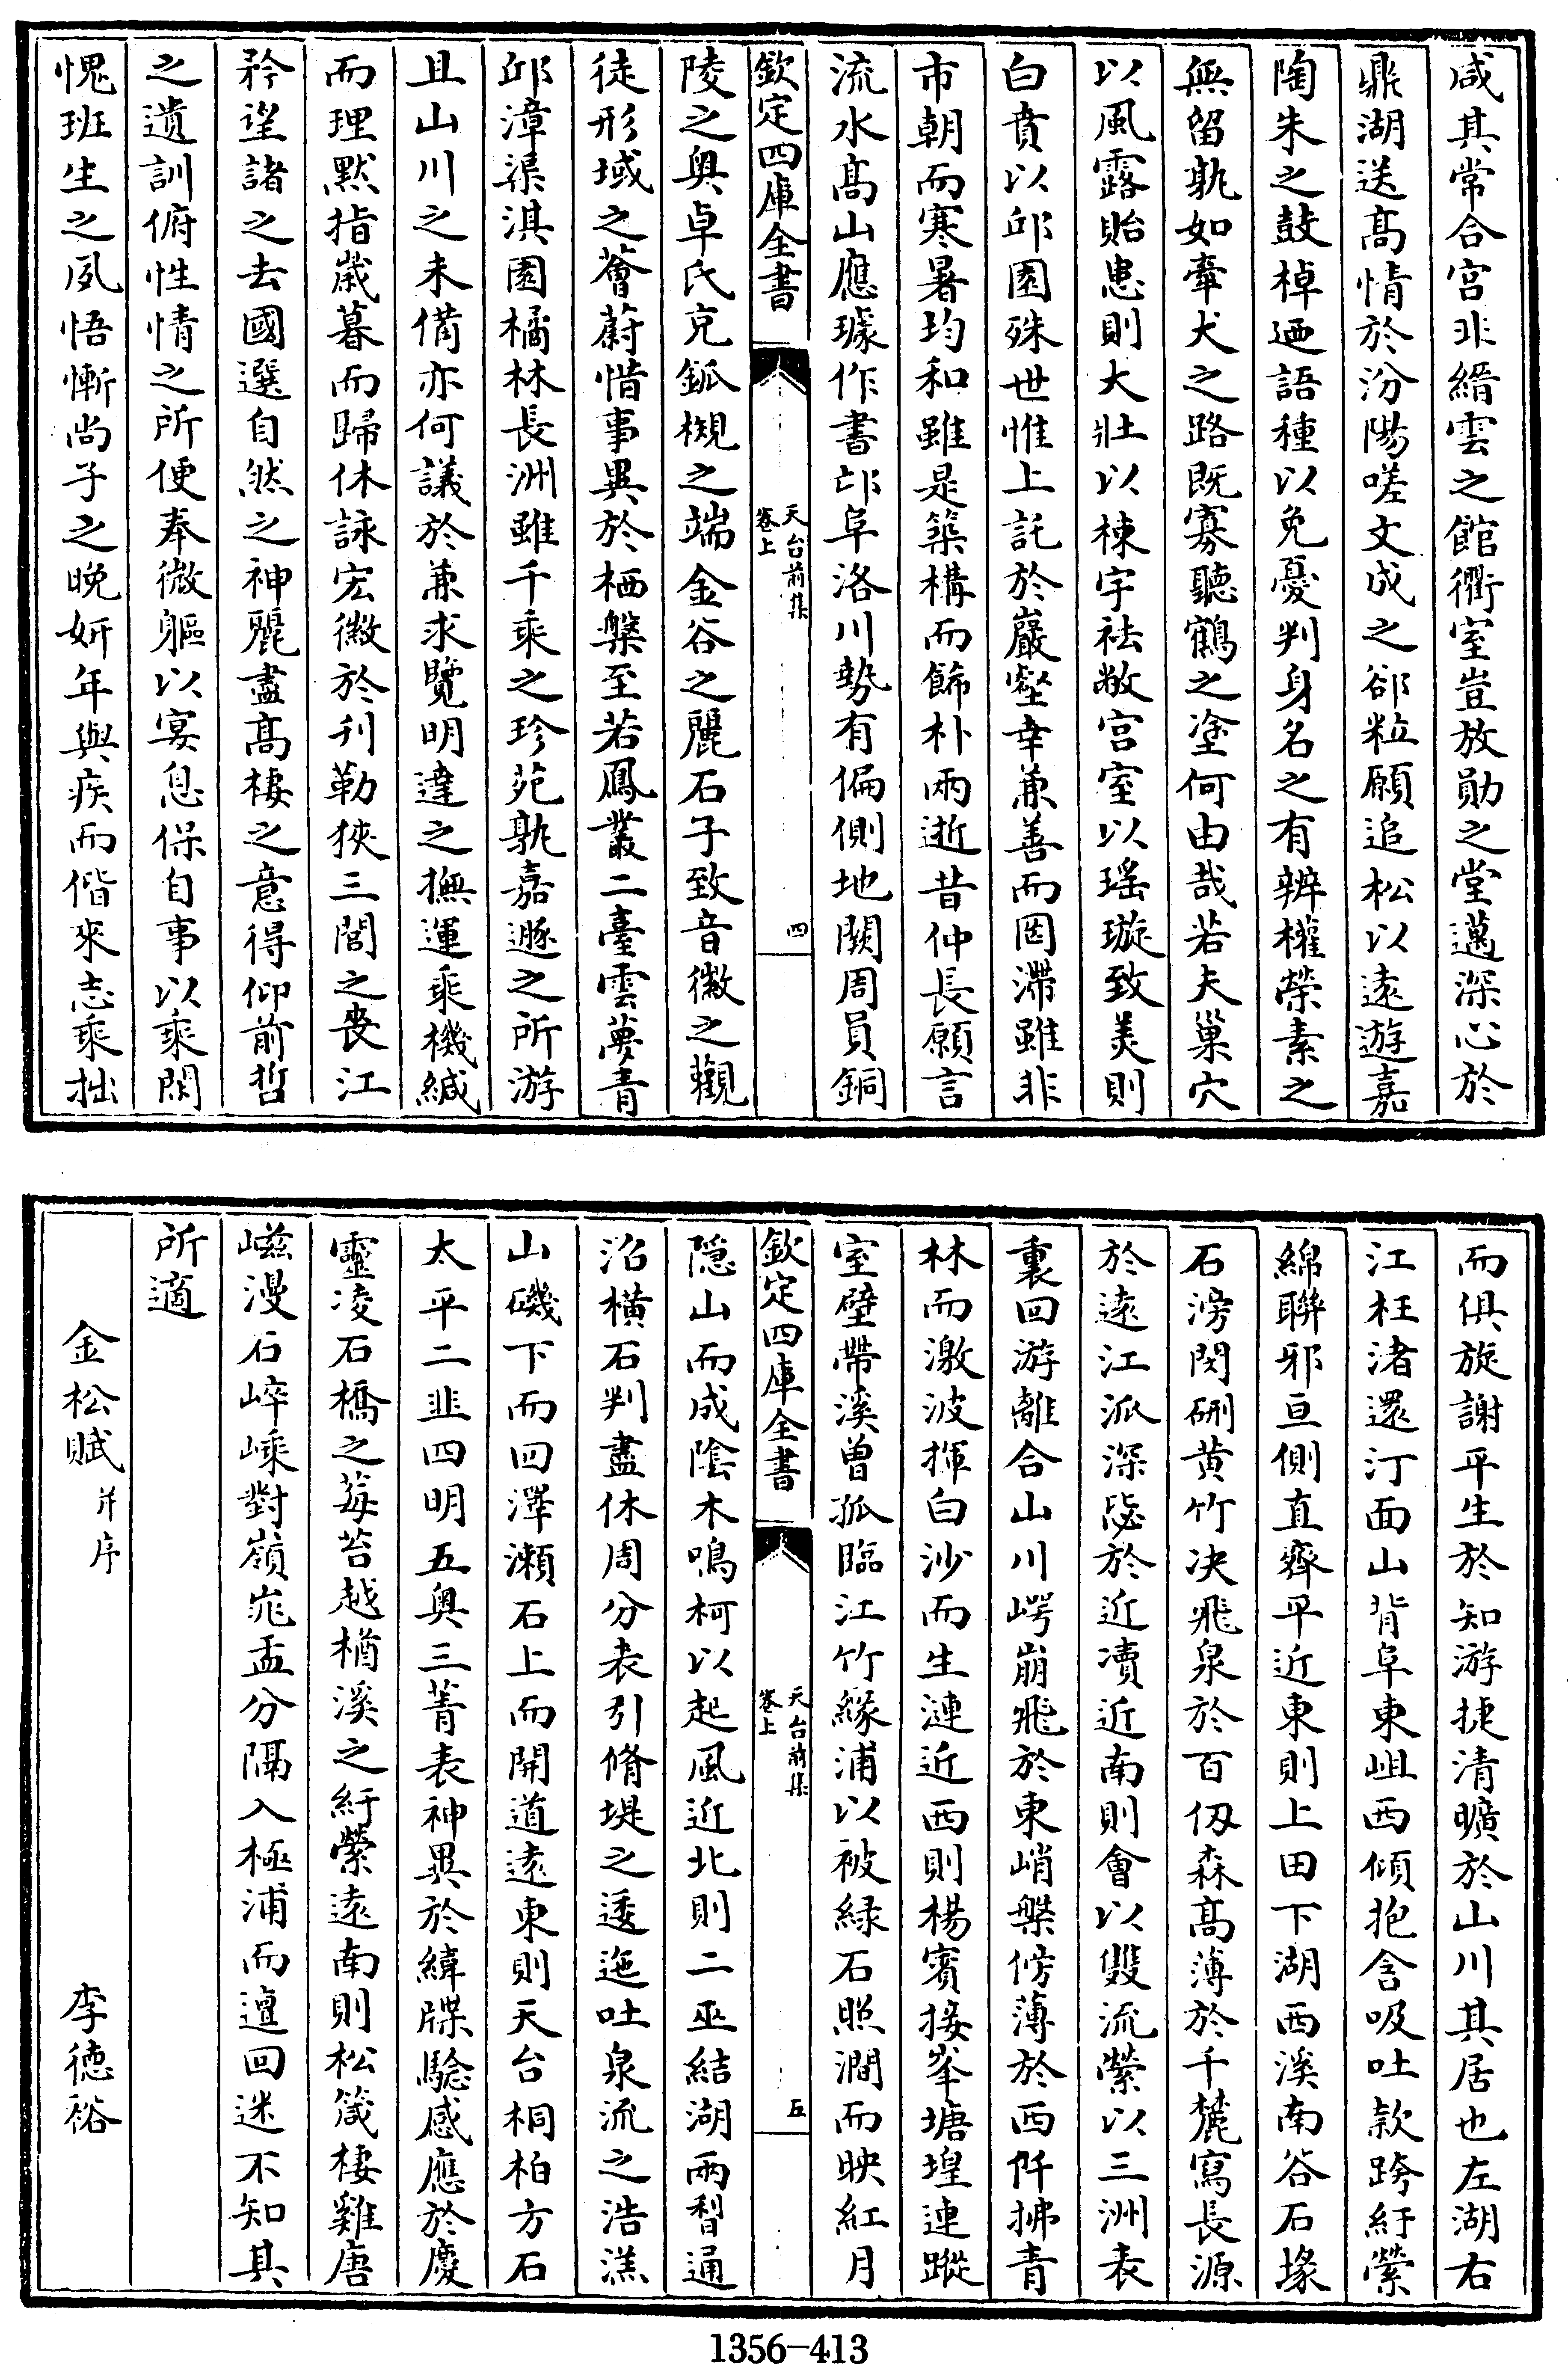 咸其常合宮非縉雲之館衢室豈放勛之堂邁深心於
鼎湖送髙情於汾陽嗟文成之郤粒願追松以遠遊嘉
陶朱之鼓棹廼語種以免憂判身名之有辨權榮素之
無留孰如牽犬之路既寡聽鶴之塗何由哉若夫巢穴
以風露貽患則大壯以棟宇袪敝宫室以瑶璇致美則
白賁以邱園殊世惟上託於巖壑幸兼善而罔滯雖非
市朝而寒暑均和雖是築構而飾朴兩逝昔仲長願言
流水髙山應璩作書邙阜洛川勢有偏側地闕周員銅
欽定四庫全書
天台前集
卷上
四
陵之奥卓氏克釽槻之端金谷之麗石子致音徽之觀
徒形域之薈蔚惜事異於栖槃至若鳳叢二臺雲夢青
邱漳渠淇園橘林長洲雖千乘之珍苑孰嘉遯之所游
且山川之未備亦何議於兼求覽明達之撫運乘機緘
而理黙指歲暮而歸休詠宏徽於刋勒狹三閭之喪江
矜望諸之去國選自然之神麗盡髙棲之意得仰前哲
之遺訓俯性情之所便奉微軀以宴息保自事以乘閑
愧班生之夙悟慚尚子之晚姸年與疾而偕來志乘拙
而俱旋謝平生於知游捷清曠於山川其居也左湖右
江枉渚還汀面山背阜東岨西傾抱含吸吐款跨紆縈
綿聯邪亘側直齊平近東則上田下湖西溪南谷石堟
石滂閔硎黄竹决飛泉於百仭森髙薄於千麓寫長源
於逺江派深毖於近凟近南則會以雙流縈以三洲表
裏回游離合山川崿崩飛於東峭槃傍薄於西阡拂青
林而激波揮白沙而生漣近西則楊賓接峯塘堭連蹤
室壁帶溪曽孤臨江竹緣浦以被緑石照澗而映紅月
欽定四庫全書
天台前集
卷上
五
隠山而成陰木鳴柯以起風近北則二巫結湖兩智通
沼橫石判盡休周分表引脩堤之逶迤吐泉流之浩溔
山磯下而回澤瀬石上而開道遠東則天台桐柏方石
太平二韭四明五奥三菁表神異於緯牒驗感應於慶
靈凌石橋之莓苔越楢溪之紆縈遠南則松箴棲雞唐
嵫漫石崪嵊對嶺㟎孟分隔入極浦而邅回迷不知其
所適
金松賦 并序
李徳裕
1356-413